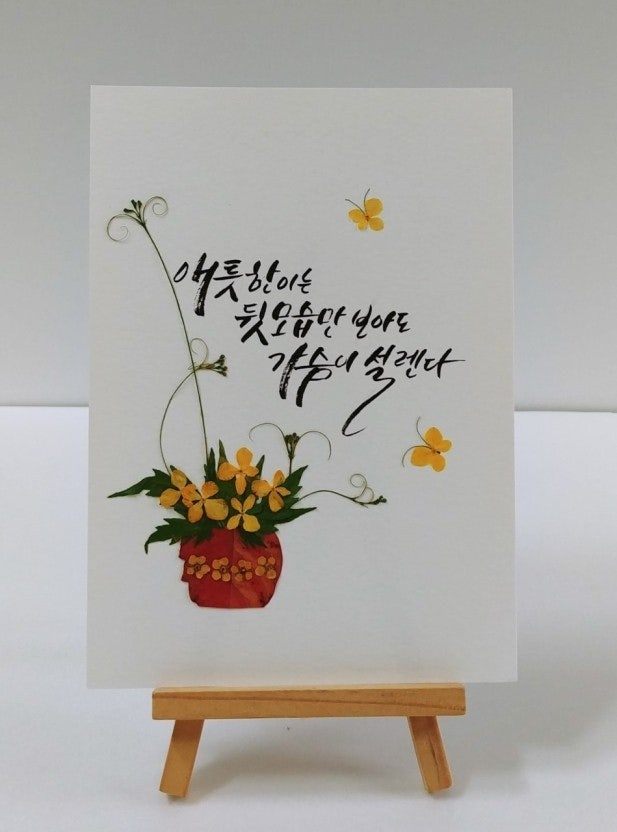 애틋한이는
뒷모습만 보아도
가슴이 설렌다